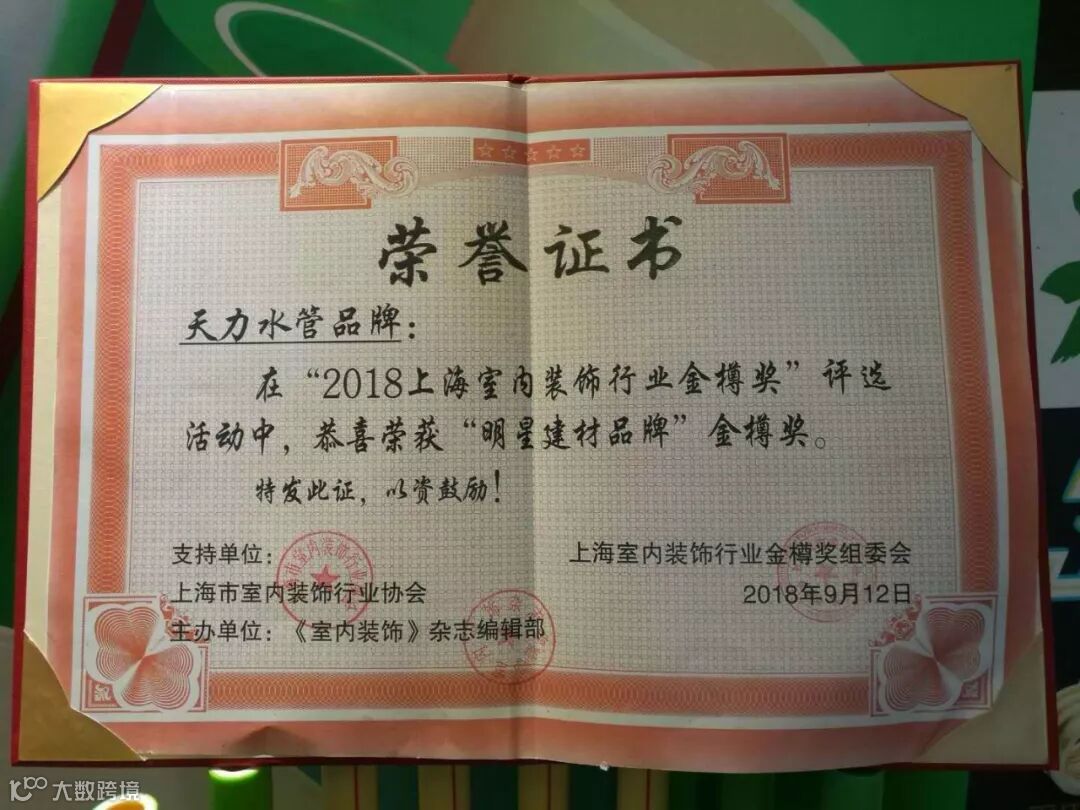 荣誉证书
天力水管品牌：
在“2018上海室内装饰行业金樽奖”评选
活动中，恭喜荣获“明星建材品牌”金樽奖。
特发此证，以资鼓励！
支持单位：
上海市室内装饰行业协会
主办单位：《室内装饰》杂志编辑部
上海室内装饰行业金樽奖组委会
2018年9月12日
大数跨境